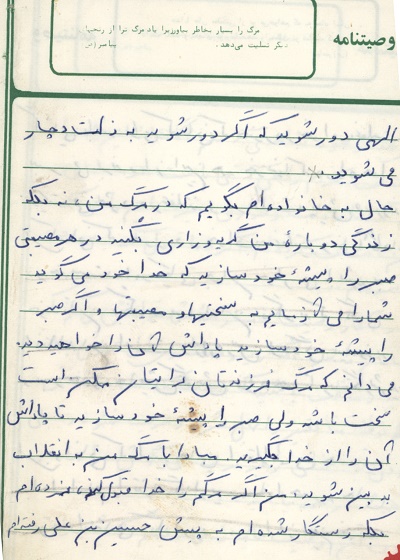 وصیتنامه
مرگ را بسیار بخاطر بیاورزیرا یاد مرگ ترا از رنجهای
دیگر تسلیت می‌دهد.
پیامبر (ص)
الهی دور شوید که اگر دور شوید به ذلت دچار
می شوید.
حال به خانواده ام بگویم که در مرگ من، نه بلکه
زندگی دوبارهٔ من گریه و زاری نکنند در هر مصیبتی
صبر را پیشهٔ خود سازید که خدا خود می گوید
شما را می آزمایم به سختیها و مصیبتها و اگر صبر
را پیشهٔ خود سازید پاداش آن را خواهید دید.
می دانم که مرگ فرزندتان برایتان ممکن است
سخت باشد ولی صبر را پیشهٔ خود سازید تا پاداش
آن را از خدا بگیرید. مبادا با مرگ من به انقلاب
بد بین شوید. من اگر مرگم را خدا قبول کند، نمرده ام
بلکه رستگار شده ام به پیش حسین بن علی رفته ام